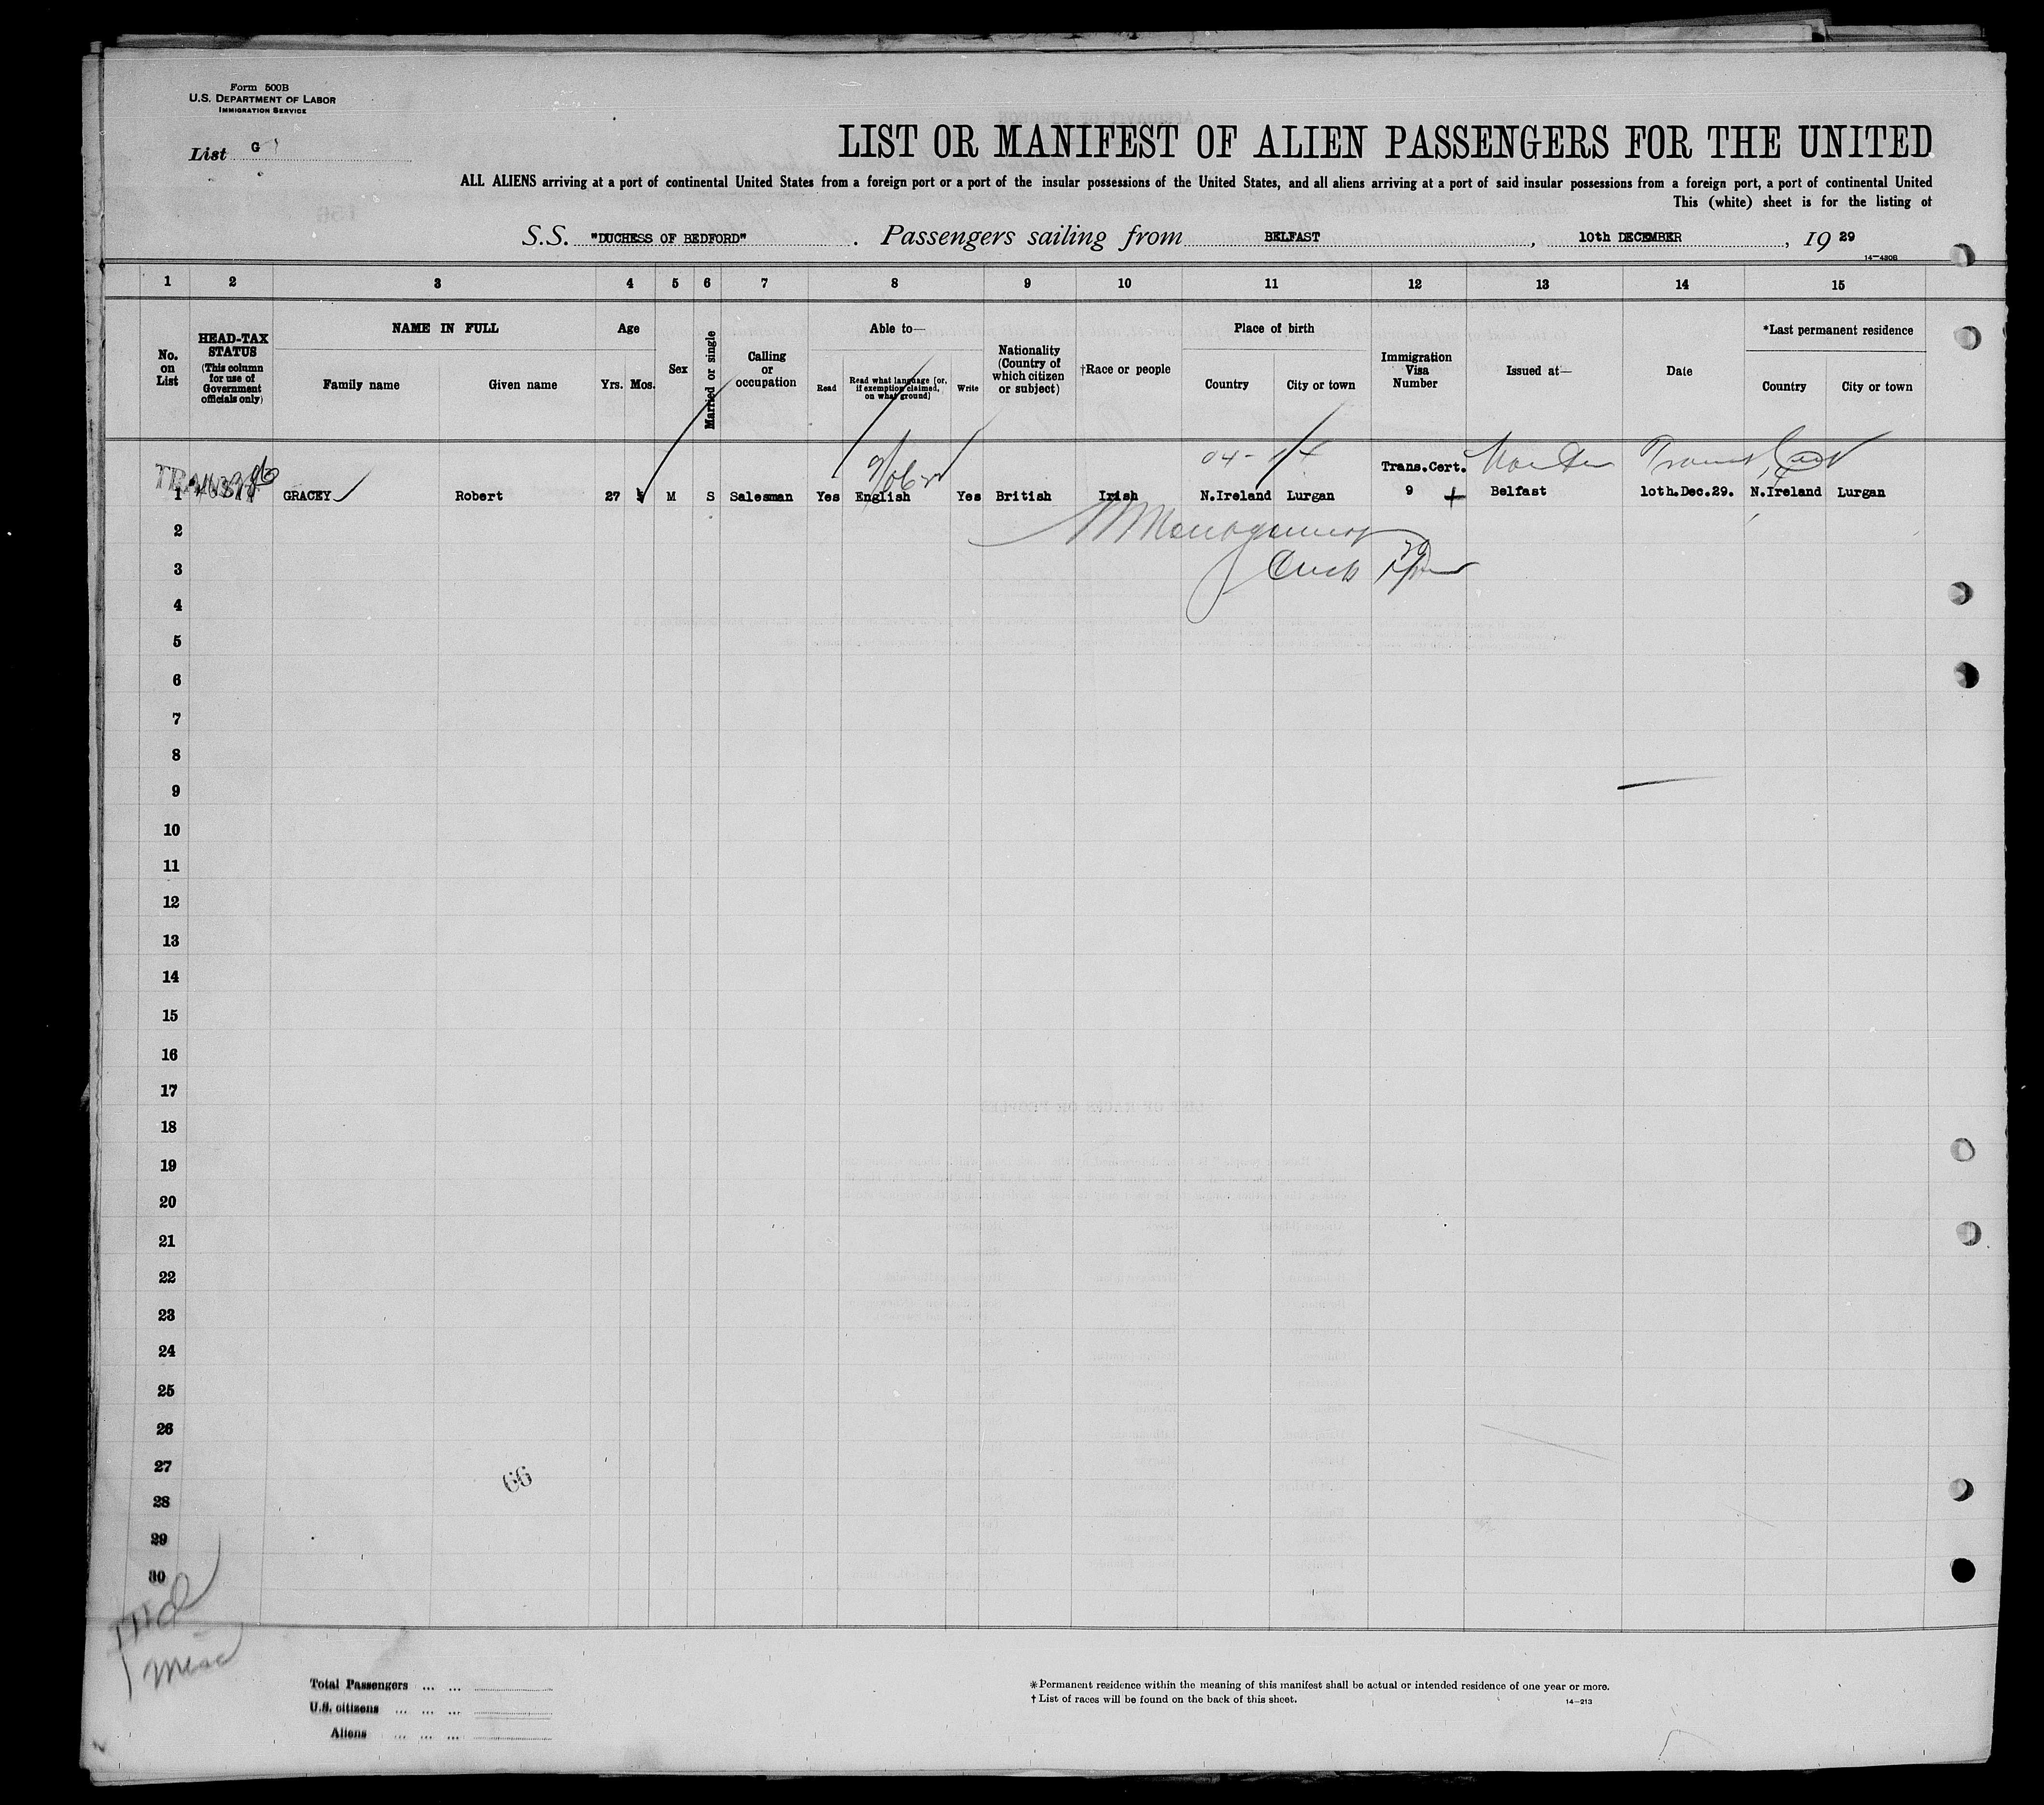 Form 500B
U.S. DEPARTMENT OF LABOR
IMMIGRATION SERVICE
List G
LIST OR MANIFEST OF ALIEN PASSENGERS FOR THE UNITED
ALL ALIENS arriving at a port of continental United States from a foreign port or a port of the insular possessions of the United States, and all aliens arriving at a port of said insular possessions from a foreign port, a port of continental United
This (white) sheet is for the listing of
S.S. "DUCHESS OF BEDFORD". Passengers sailing from BELFAST, 10th DECEMBER, 1929
14—430B
1 2 3 4 5 6 7 8 9 10 11 12 13 14 15
No. on List
HEAD-TAX STATUS
(This column for use of Government officials only)
NAME IN FULL
Family name Given name
Age
Yrs. Mos.
Sex
Married or single
Calling or occupation
Able to—
Read
Read what language [or, if exemption claimed, on what ground]
Write
Nationality (Country of which citizen or subject)
†Race or people
Place of birth
Country City or town
Immigration Visa Number
Issued at—
Date
*Last permanent residence
Country City or town
Trans.Cert.
1 GRACEY Robert 27 M S Salesman Yes English Yes British Irish N.Ireland Lurgan 9 Belfast 10th.Dec.29. N.Ireland Lurgan
2
3
4
5
6
7
8
9
10
11
12
13
14
15
16
17
18
19
20
21
22
23
24
25
26
27
66
28
29
30
Total Passengers ... ...
U.S. citizens ... ... ...
Aliens ... ... ...
*Permanent residence within the meaning of this manifest shall be actual or intended residence of one year or more.
†List of races will be found on the back of this sheet.
14—213